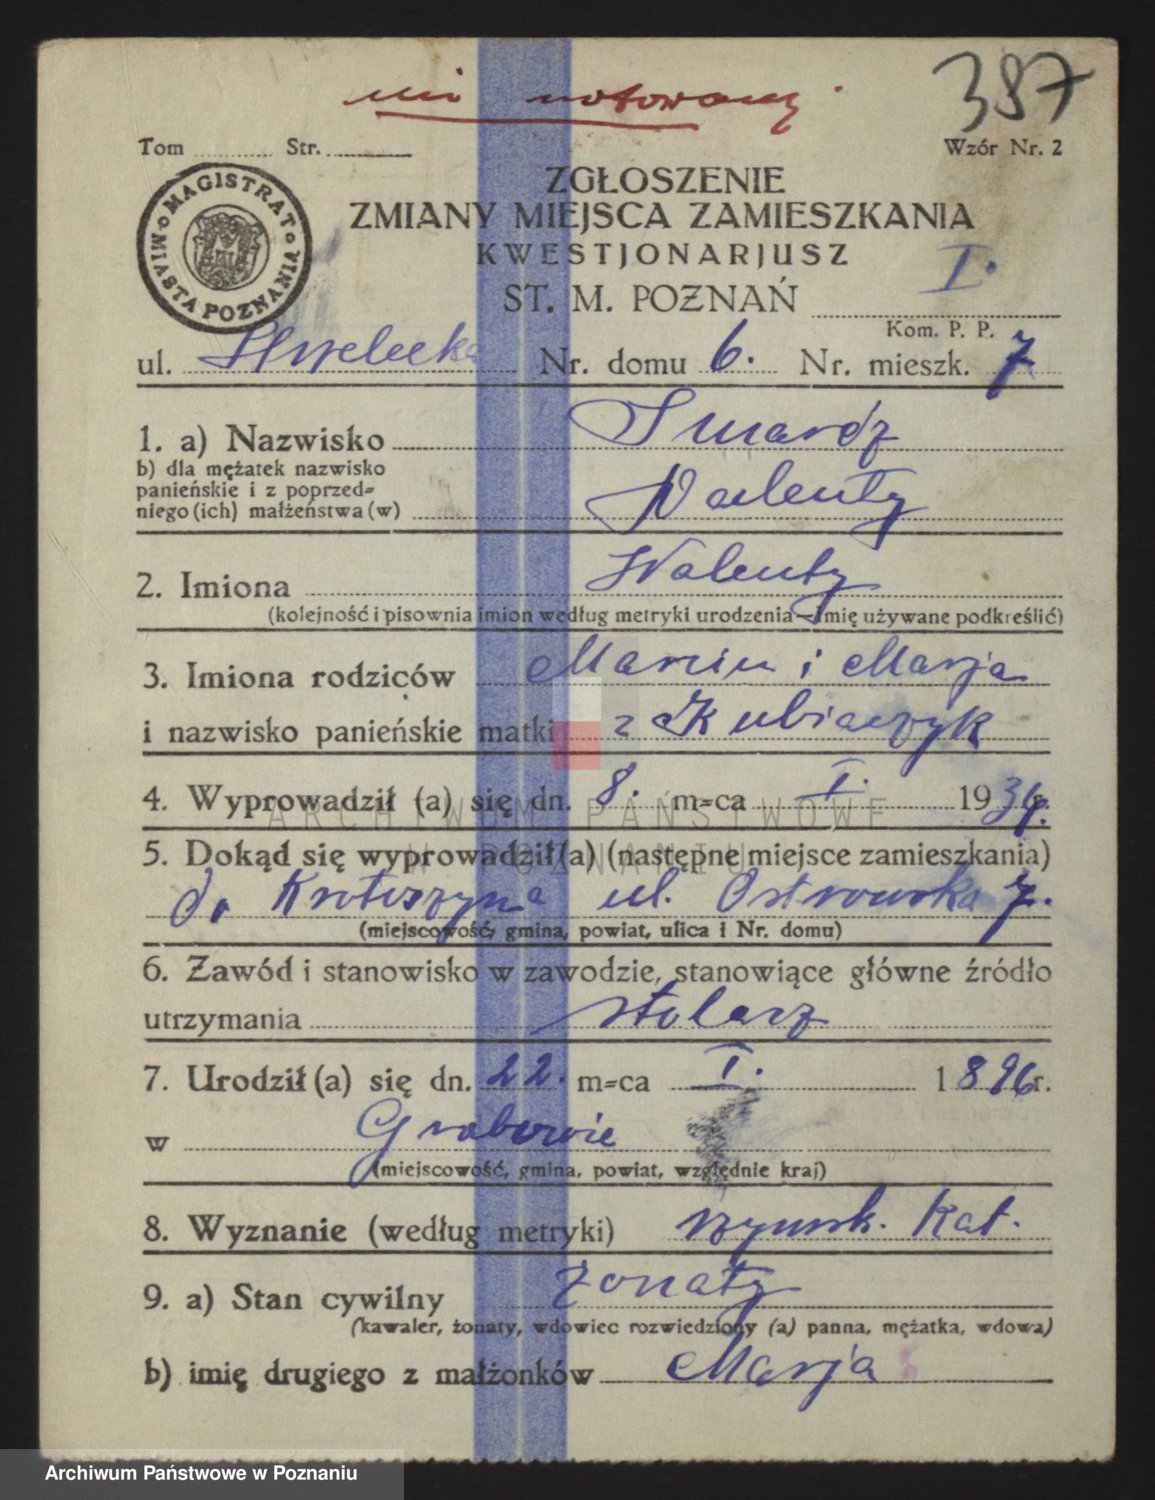 nie notowany
387
Tom ........ Str. ........ Wzór Nr. 2
MAGISTRAT MIASTA POZNANIA
ZGŁOSZENIE
ZMIANY MIEJSCA ZAMIESZKANIA
KWESTJONARJUSZ
ST. M. POZNAŃ I.
Kom. P. P.
ul. Strzelecka Nr. domu 6. Nr. mieszk. 7
1. a) Nazwisko Smardz
b) dla mężatek nazwisko
panieńskie i z poprzed=
niego (ich) małżeństwa (w) Walenty
2. Imiona Walenty
(kolejność i pisownia imion według metryki urodzenia — imię używane podkreślić)
3. Imiona rodziców Marcin i Marja
i nazwisko panieńskie matki z Kubiaczyk
4. Wyprowadził (a) się dn. 8. m=ca I. 1934 r.
ARCHIWUM PAŃSTWOWE
W POZNANIU
5. Dokąd się wyprowadził(a) (następne miejsce zamieszkania)
do Krotoszyna ul. Ostrowska 7.
(miejscowość, gmina, powiat, ulica i Nr. domu)
6. Zawód i stanowisko w zawodzie, stanowiące główne źródło
utrzymania stolarz
7. Urodził (a) się dn. 22. m=ca I. 1896 r.
w Grabowie
(miejscowość, gmina, powiat, względnie kraj)
8. Wyznanie (według metryki) rzymsk. kat.
9. a) Stan cywilny żonaty
(kawaler, żonaty, wdowiec rozwiedziony (a) panna, mężatka, wdowa)
b) imię drugiego z małżonków Marja
Archiwum Państwowe w Poznaniu